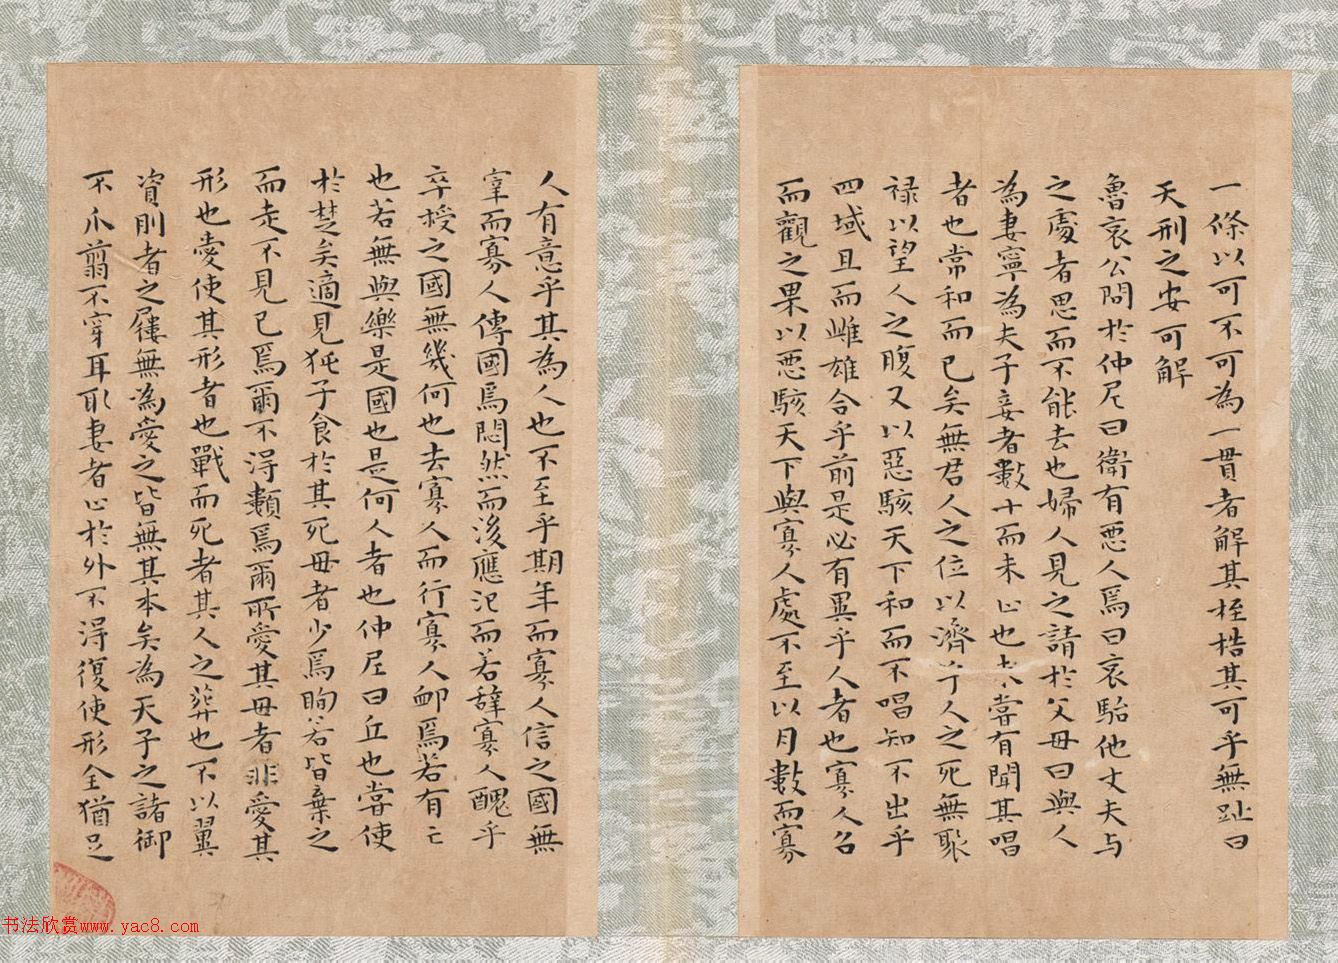 一條以可不可為一貫者解其桎梏其可乎無趾曰
天刑之安可解
魯哀公問於仲尼曰衛有惡人焉曰哀駘他丈夫与
之處者思而不能去也婦人見之請於父母曰與人
為妻寧為夫子妾者數十而未止也未嘗有聞其唱
者也常和而已矣無君人之位以濟乎人之死無聚
祿以望人之腹又以惡駭天下和而不唱知不出乎
四域且而雌雄合乎前是必有異乎人者也寡人召
而觀之果以惡駭天下與寡人處不至以月數而寡
人有意乎其為人也不至乎期年而寡人信之國無
宰而寡人傳國焉悶然而後應氾而若辭寡人醜乎
卒授之國無幾何也去寡人而行寡人卹焉若有亡
也若無與樂是國也是何人者也仲尼曰丘也嘗使
於楚矣適見㹠子食於其死母者少焉眴若皆棄之
而走不見已焉爾不得類焉爾所愛其母者非愛其
形也愛使其形者也戰而死者其人之葬也不以翼
資刖者之屨無為愛之皆無其本矣為天子之諸御
不爪翦不穿耳取妻者止於外不得復使形全猶足
书法欣赏www.yac8.com